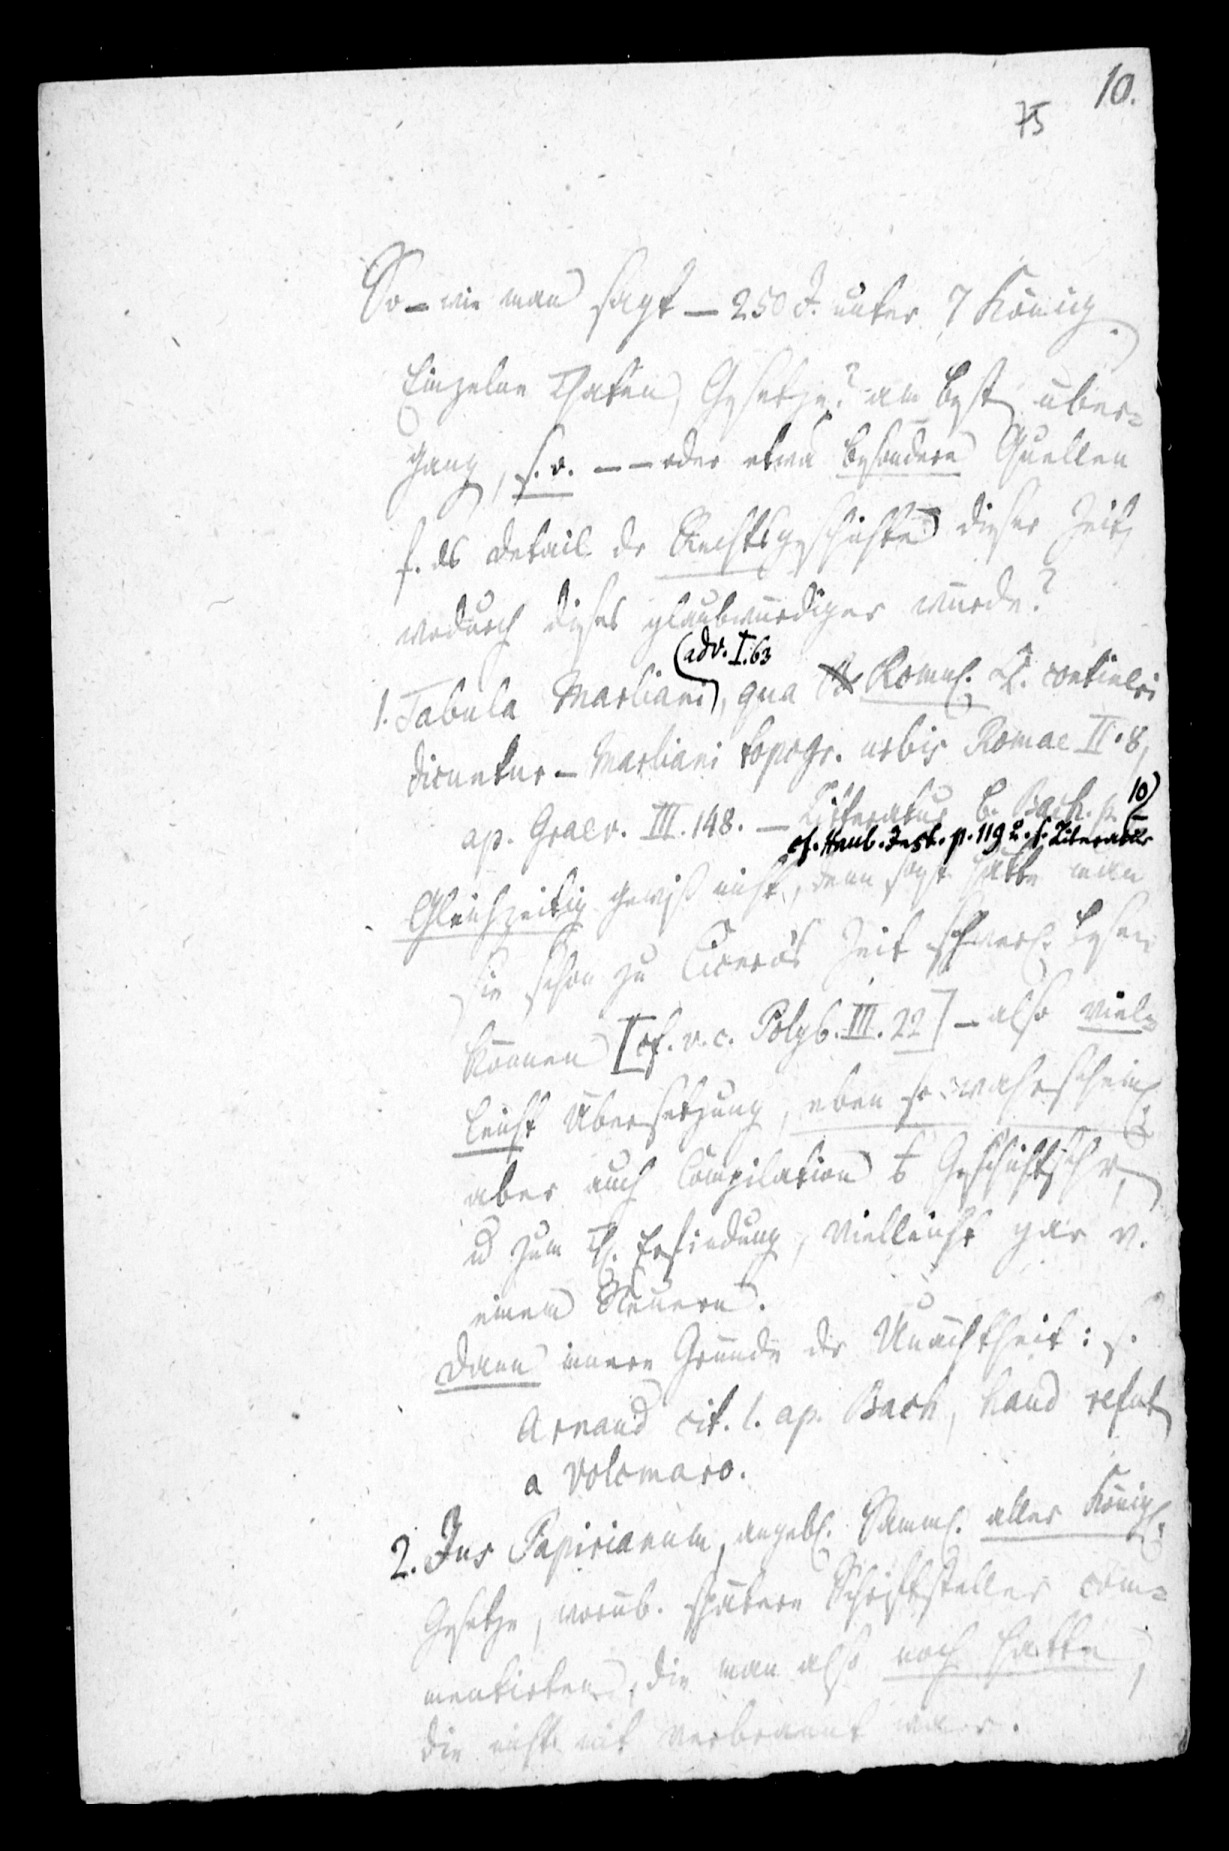 10.
75
So – wie man sagt – 250 J. unter 7 König
Einzelne Thaten, Gesetze? am best. über=
gang, s. o. – – oder etwa besondere Quellen
f. ds Detail dr Rechtsgeschichte dieser Zeit,
wodurch dieses glaubwürdiger würde?
(adv. I. 63
1. Tabula Marliani, qua Romul. L. contineri
dicuntur – Marliani topogr. urbis Romae II. 8,
ap. Graev. III. 148. – Litteratur b. Bach. p. 10)
cf. Haub. Inst. p. 119 u. f. Literatur
Gleichzeitig gewiß nicht, denn sonst hätte man
sie schon zu Cicero's Zeit schwerl. lesen
können [cf. v. c. Polyb. III. 22] – also viel=
leicht Übersetzung, eben so wahrscheinl.
aber auch Compilation Geschichtschr.,
u zum Th. Erfindung, vielleicht gar v.
einem Neuern.
Dann innere Gründe dr Unächtheit: s.
Arnaud cit. l. ap. Bach, haud refut.
a Volcmaro.
2. Jus Papirianum, angebl. Samml. aller Königl.
Gesetze, worüb. spätere Schriftsteller com=
mentirten, die man also noch hatte,
die nicht mit verbrannt war.